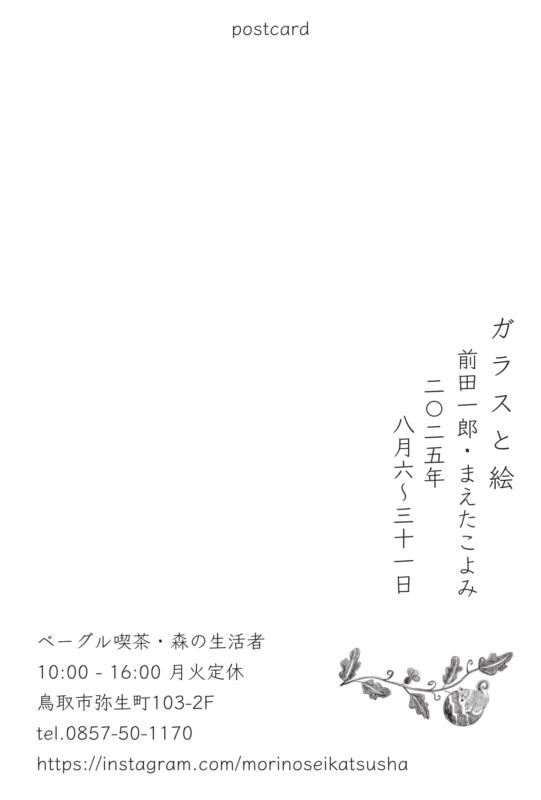 postcard
ガラスと絵
前田一郎・まえたこよみ
二〇二五年
八月六〜三十一日
ベーグル喫茶・森の生活者
10:00 - 16:00 月火定休
鳥取市弥生町103-2F
tel.0857-50-1170
https://instagram.com/morinoseikatsusha